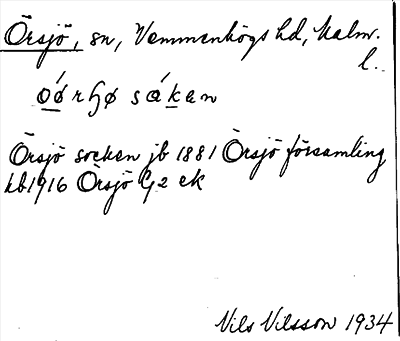 Örsjö, sn, Vemmenhögs hd, Malm.
l.
Örsjö socken jb 1881 Örsjö församling
kb 1916 Örsjö G2 ek
Nils Nilsson 1934